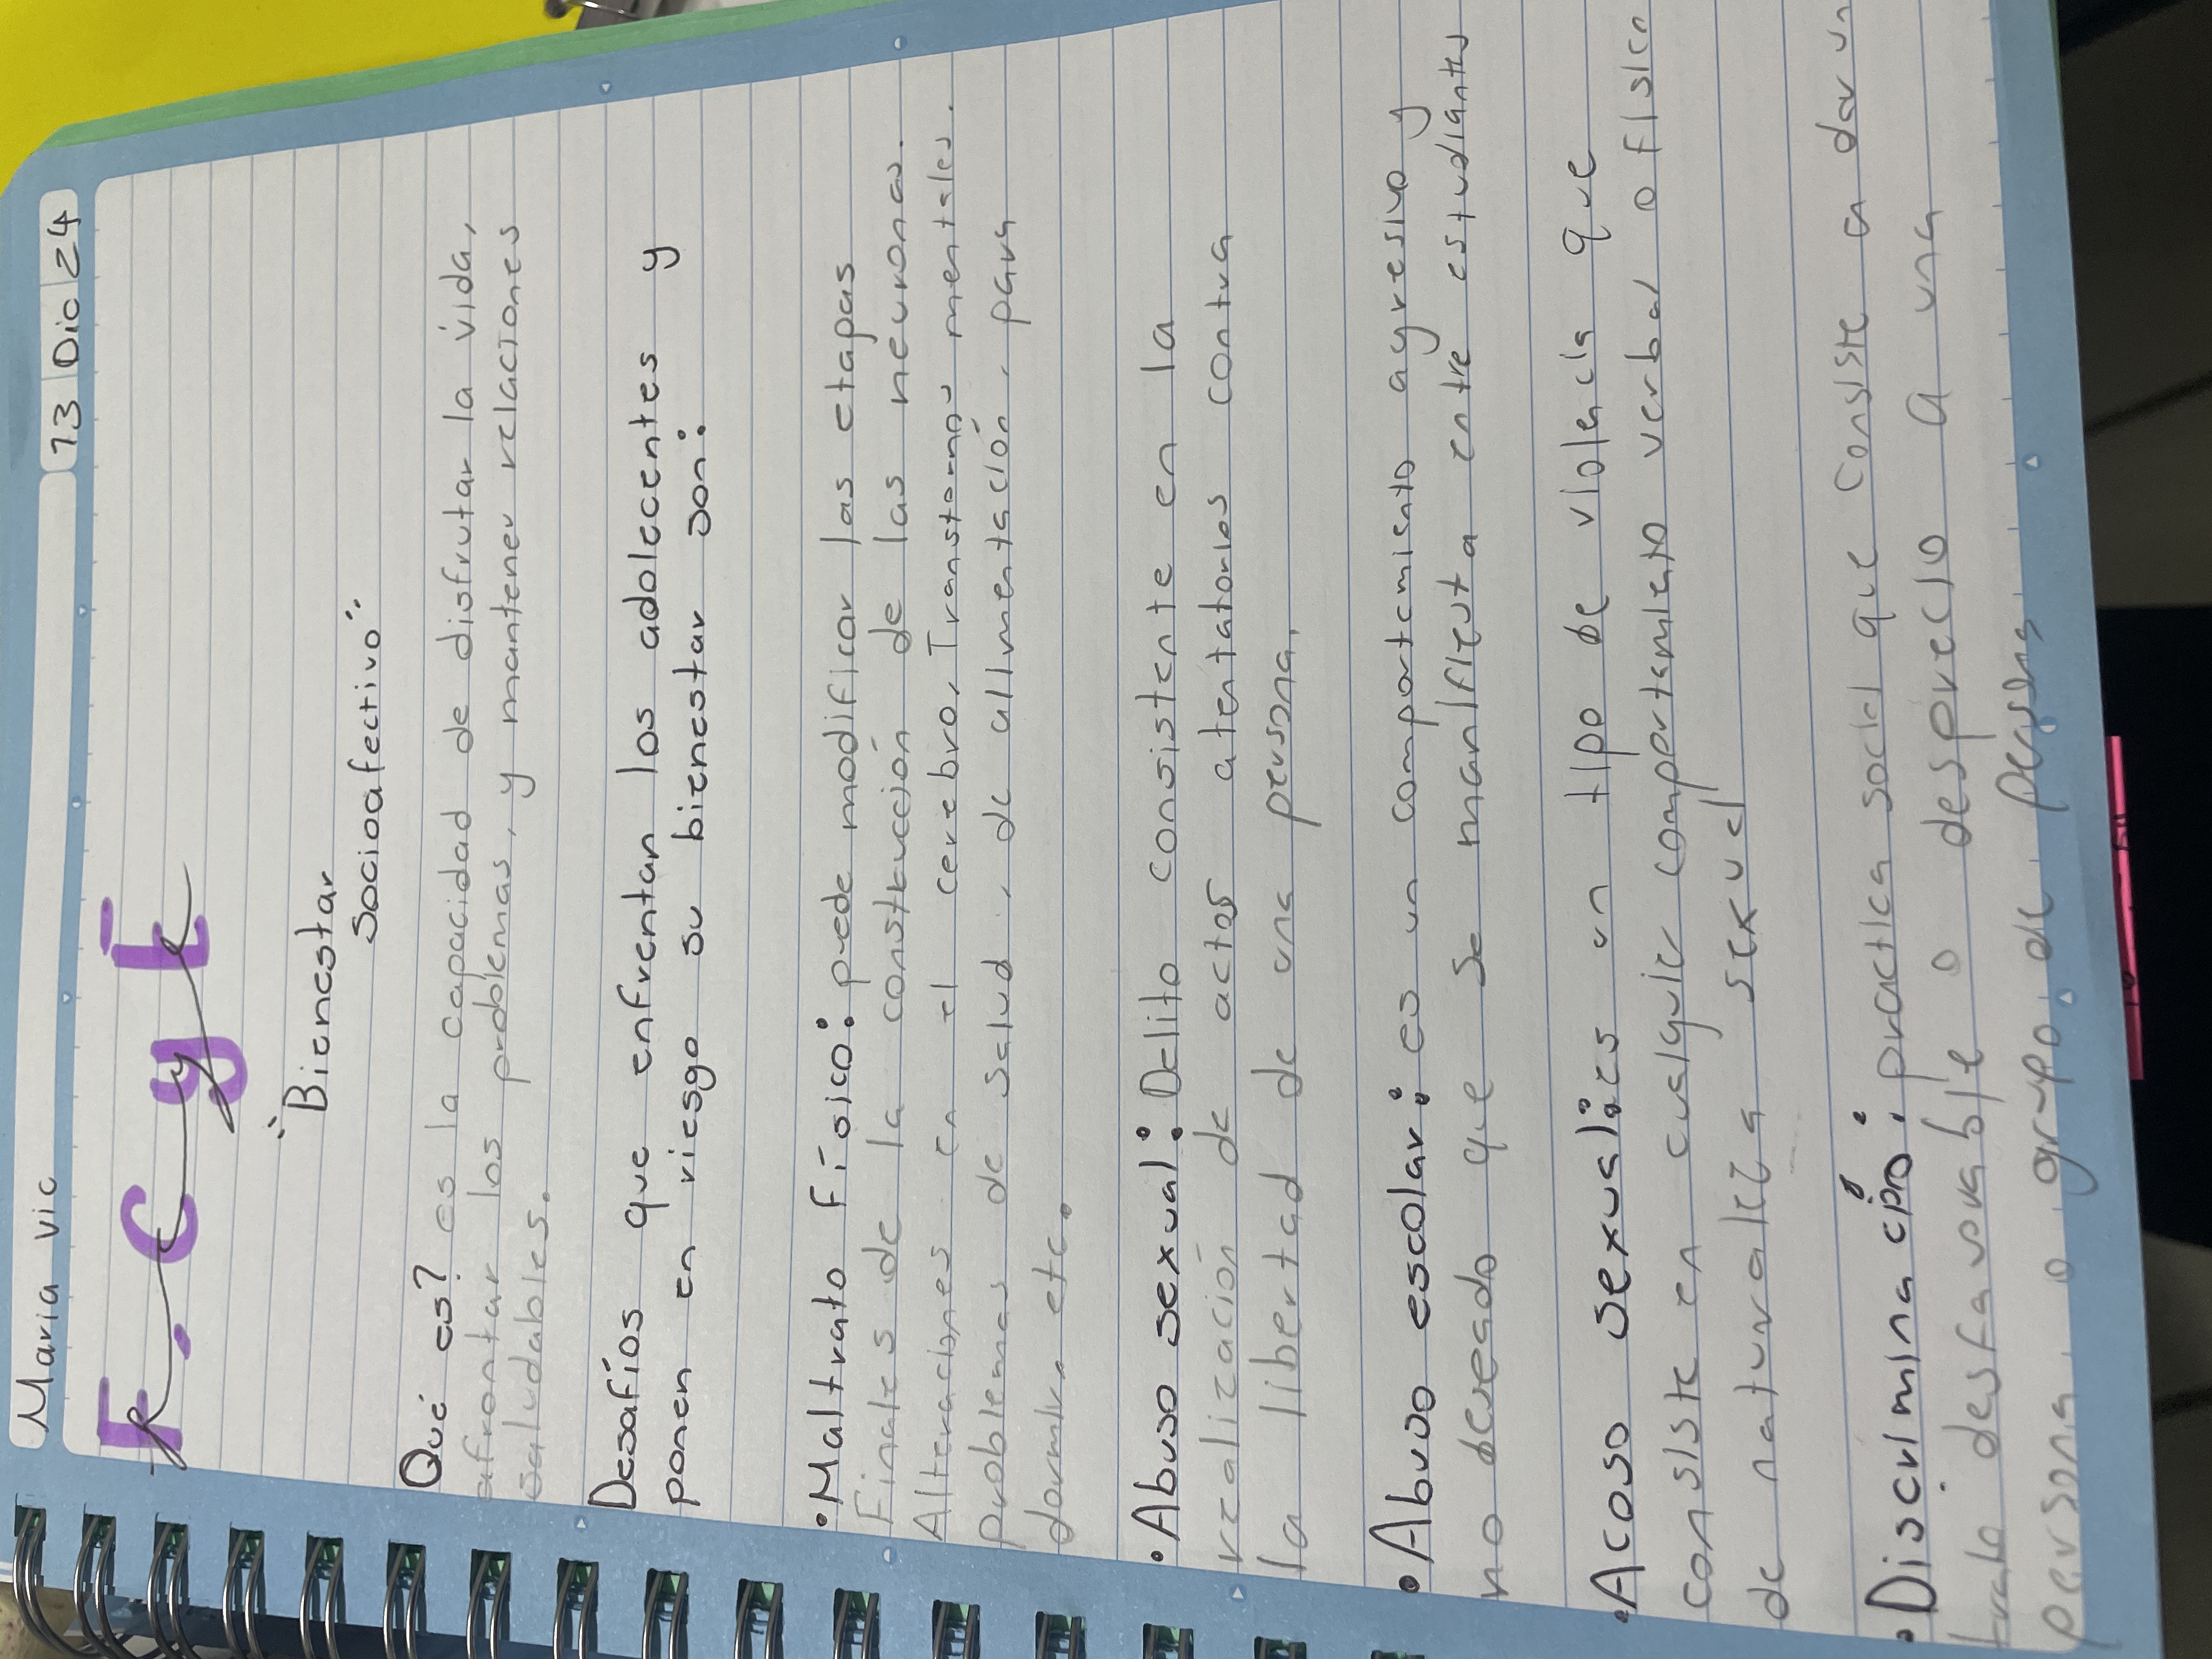 Maria vic 13 Dic 24
F. C y E
"Bienestar
socioafectivo"
Qué es? es la capacidad de disfrutar la vida,
afrontar los problemas, y mantener relaciones
saludables.
Desafíos que enfrentan los adolecentes y
ponen en riesgo su bienestar son:
• Maltrato Físico: pede modificar las etapas
Finales de la construcción de las neuronas.
Alteraciones en el cerebro, Transtornos mentales.
problemas de salud, de alimentación, para
dormir, etc.
• Abuso sexual: Delito consistente en la
realización de actos atentatorios contra
la libertad de una persona.
• Abuso escolar: es un comportamiento agresivo y
no deseado que se manifiesta entre estudiantes
• Acoso sexual: es un tipo de violencia que
consiste en cualquie comportamiento verbal o físico
de naturaleza sexual
• Discriminación: practica social que consiste a dar un
trato desfavorable o desprecio a una
persona o grupo de persona